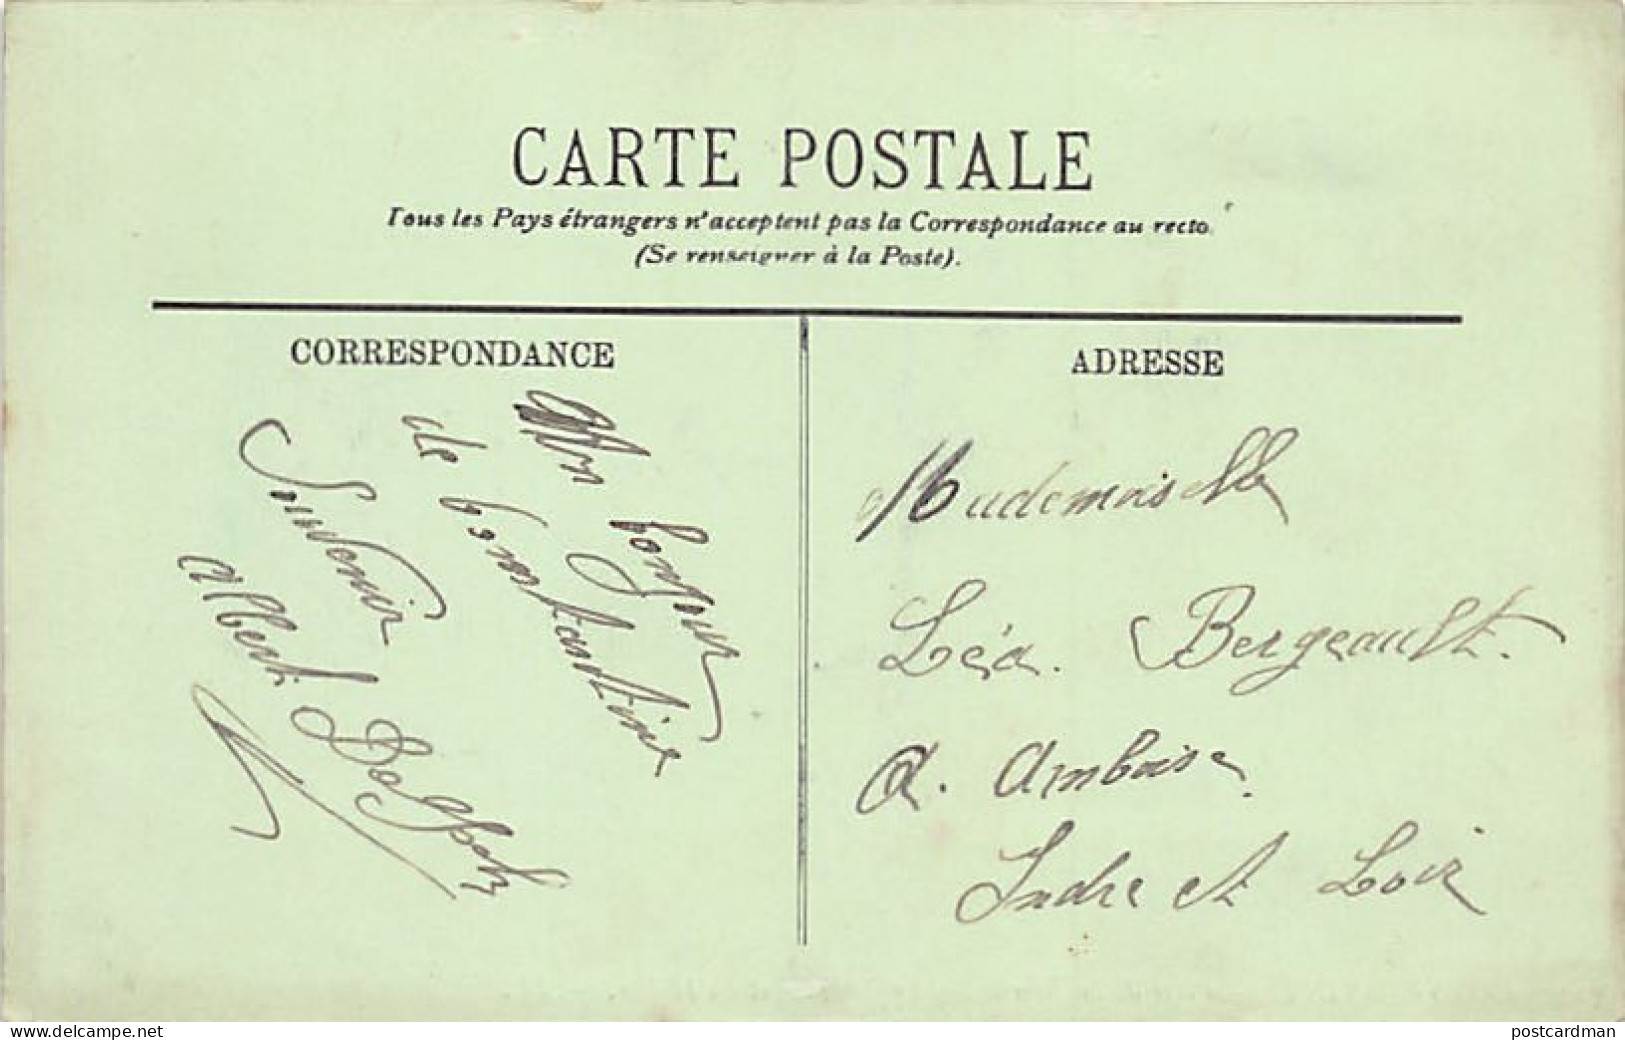 CARTE POSTALE
Tous les Pays étrangers n'acceptent pas la Correspondance au recto.
(Se renseigner à la Poste).
CORRESPONDANCE
Mon bonjour
de Constantine
Souvenir
Albert
ADRESSE
Mademoiselle
Léa. Bergeault.
A. Amboise.
Indre et Loir
www.delcampe.net
postcardman